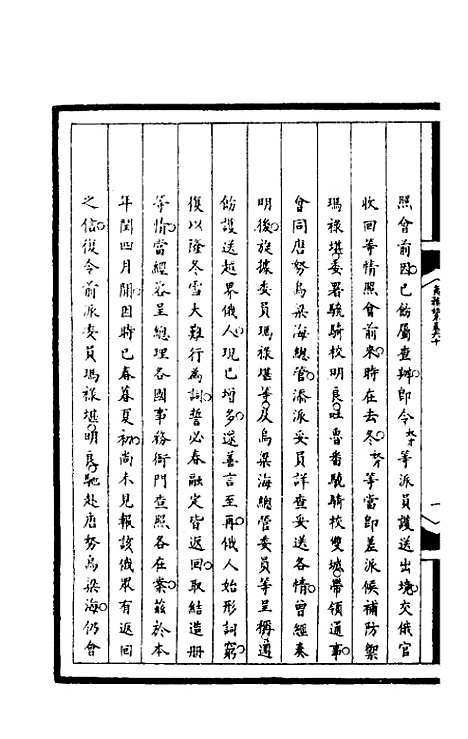 照會前因已飭屬查辦即令奴才等派員護送出境交俄官
收回等情照會前來時在去冬奴才等當即差派候補防禦
瑪祿堪委署驍騎校明良吐魯番驍騎校雙城帶領通事
會同唐努烏梁海總管添派妥員詳查妥送各情曾經奏
明後旋據委員瑪祿堪等及烏梁海總管委員等呈稱遵
飭護送越界俄人現已增多遂善言至再俄人始形詞窮
復以隆冬雪大難行為詞誓必春融定皆返回取結造冊
等情當經咨呈總理各國事務衙門查照各在案茲於本
年閏四月開因時已春暮夏初尚未見報該俄眾有返回
之信復令前派委員瑪祿堪明良馳赴唐努烏梁海仍會